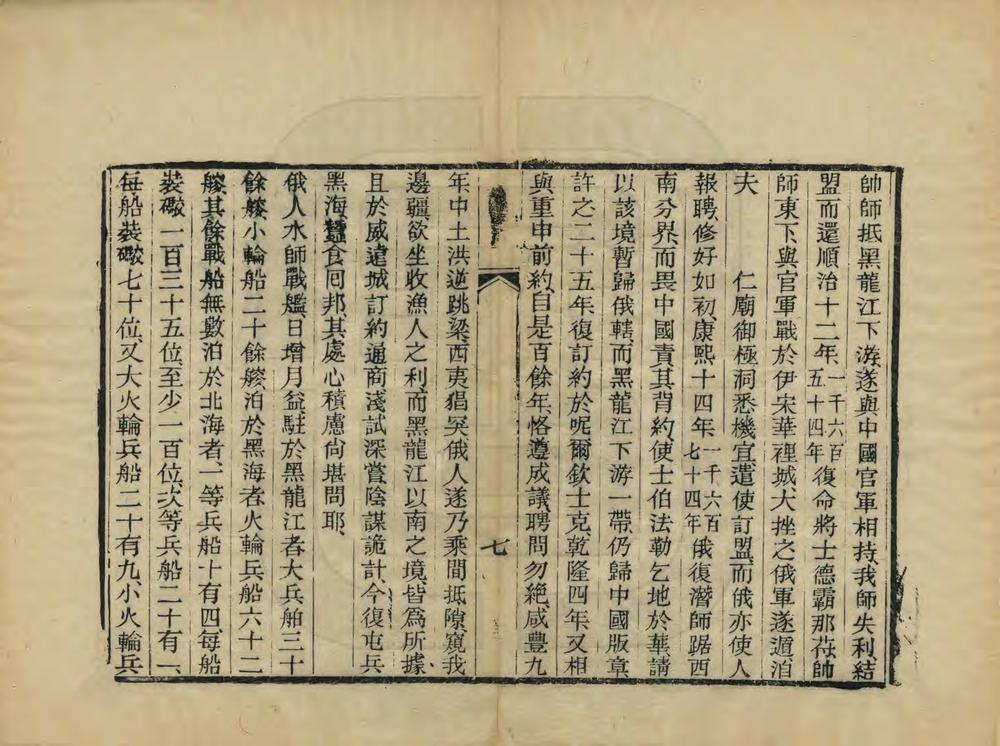 帥師抵黑龍江下游、遂與中國官軍相持、我師失利、結
盟而還、順治十二年、一千六百五十四年復命將士德霸那薙帥
師東下、與官軍戰於伊宋華裡城、大挫之、俄軍遂遁、洎
夫　　仁廟御極、洞悉機宜、遣使訂盟、而俄亦使人
報聘、修好如初、康熙十四年、一千六百七十四年俄復潛師踞西
南分界、而畏中國責其背約、使士伯法勒乞地於華、請
以該境暫歸俄轄、而黑龍江下游一帶、仍歸中國版章、
許之、二十五年、復訂約於呢爾欽士克、乾隆四年、又相
與重申前約、自是百餘年、恪遵成議、聘問勿絕、咸豐九
七
年、中土洪逆跳梁、西夷猖𤞤、俄人遂乃乘間抵隙、窺我
邊疆、欲坐收漁人之利、而黑龍江以南之境、皆爲所據、
且於威遠城訂約通商、淺試深嘗、陰謀詭計、今復屯兵
黑海、蠶食回邦、其處心積慮、尚堪問耶、
俄人水師戰艦、日增月益、駐於黑龍江者、大兵船三十
餘艘、小輪船二十餘艘、泊於黑海者、火輪兵船六十二
艘、其餘戰船無數、泊於北海者、一等兵船十有四、每船
裝礮一百三十五位、至少一百位、次等兵船二十有一、
每船裝礮七十位、又大火輪兵船二十有九、小火輪兵